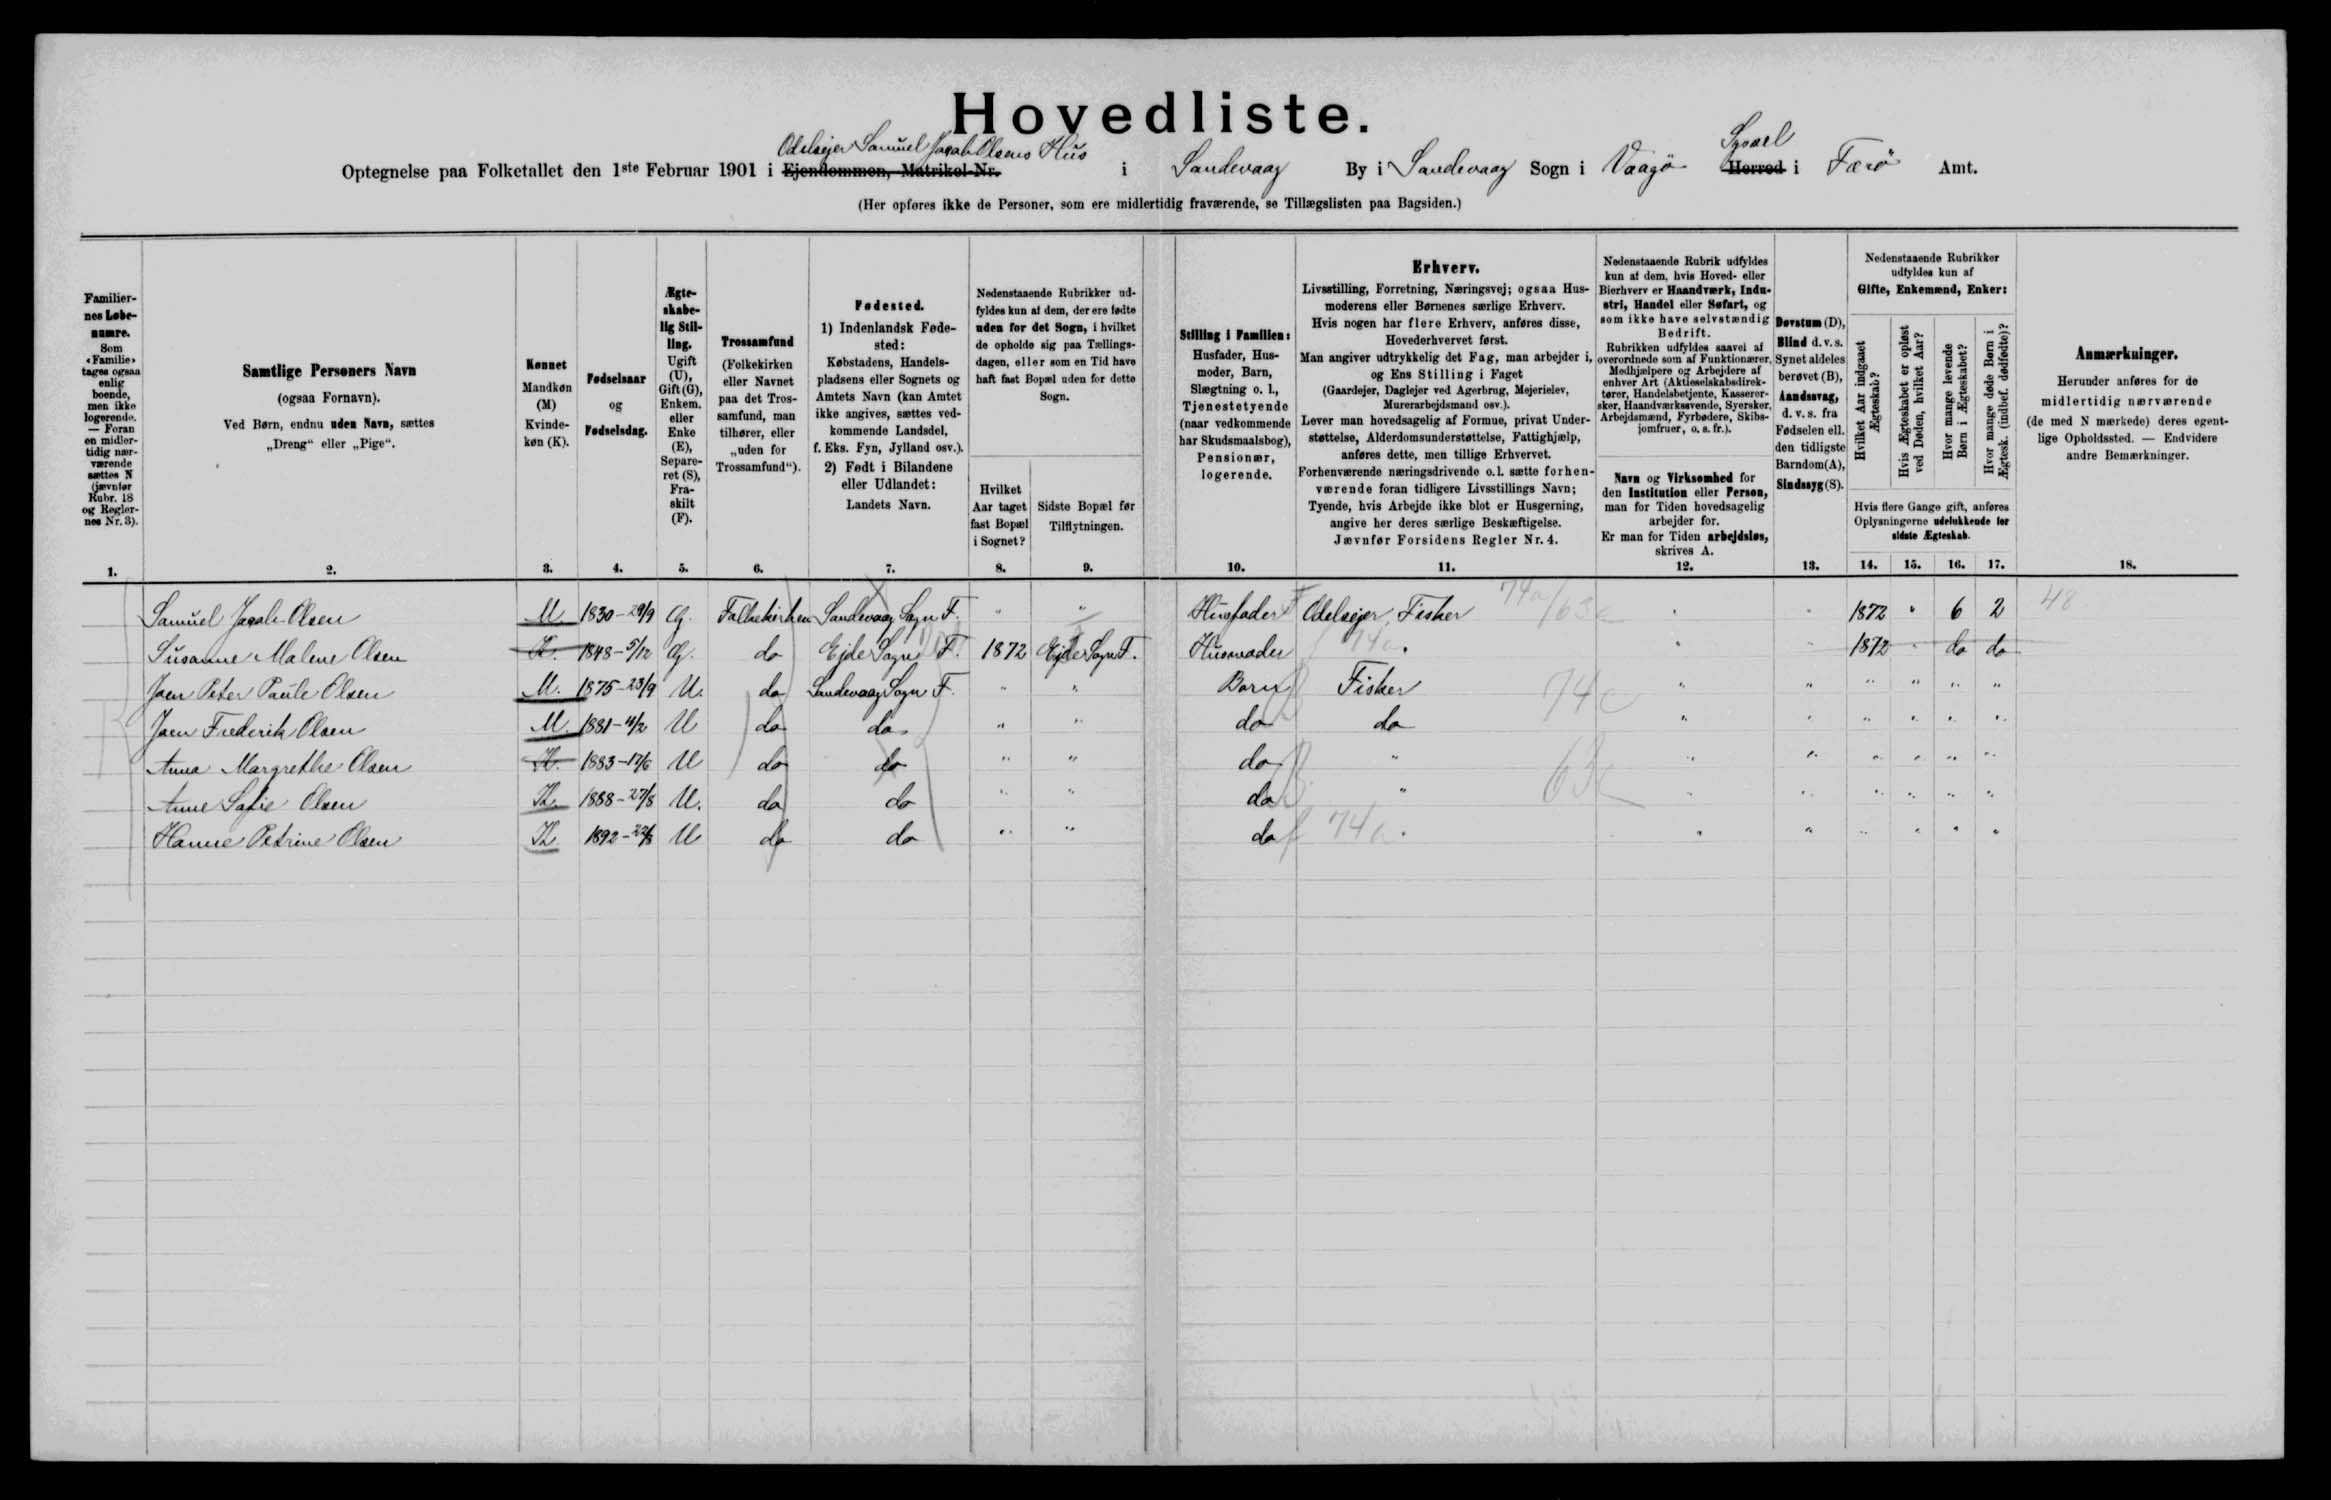 Hovedliste.
Odelsejer Samuel Jacob Olsens Hus
Optegnelse paa Folketallet den 1ste Februar 1901 i Ejendommen, Matrikel-Nr. i Sandevaag By i Sandevaag Sogn i Vaagø Herred Syssel i Færø Amt.
(Her opføres ikke de Personer, som ere midlertidig fraværende, se Tillægslisten paa Bagsiden.)
Familiernes Løbenumre.
Som «Familie» tages ogsaa enlig boende, men ikke logerende. — Foran en midlertidig nærværende sættes N (jævnfør Rubr. 18 og Reglernes Nr. 3).
1.
Samtlige Personers Navn
(ogsaa Fornavn).
Ved Børn, endnu uden Navn, sættes
„Dreng“ eller „Pige“.
2.
Kønnet
Mandkøn (M)
Kvindekøn (K).
3.
Fødselsaar
og
Fødselsdag.
4.
Ægteskabelig Stilling.
Ugift (U), Gift (G), Enkem. eller Enke (E), Separeret (S), Fraskilt (F).
5.
Trossamfund
(Folkekirken eller Navnet paa det Trossamfund, man tilhører, eller „uden for Trossamfund“).
6.
Fødested.
1) Indenlandsk Fødested:
Købstadens, Handelspladsens eller Sognets og Amtets Navn (kan Amtet ikke angives, sættes vedkommende Landsdel, f. Eks. Fyn, Jylland osv.).
2) Født i Bilandene eller Udlandet:
Landets Navn.
7.
Nedenstaaende Rubrikker udfyldes kun af dem, der ere fødte uden for det Sogn, i hvilket de opholde sig paa Tællingsdagen, eller som en Tid have haft fast Bopæl uden for dette Sogn.
Hvilket Aar taget fast Bopæl i Sognet?
8.
Sidste Bopæl før Tilflytningen.
9.
Stilling i Familien:
Husfader, Husmoder, Barn, Slægtning o. l., Tjenestetyende (naar vedkommende har Skudsmaalsbog), Pensionær, logerende.
10.
Erhverv.
Livsstilling, Forretning, Næringsvej; ogsaa Husmoderens eller Børnenes særlige Erhverv.
Hvis nogen har flere Erhverv, anføres disse, Hovederhvervet først.
Man angiver udtrykkelig det Fag, man arbejder i, og Ens Stilling i Faget
(Gaardejer, Daglejer ved Agerbrug, Mejerielev, Murerarbejdsmand osv.).
Lever man hovedsagelig af Formue, privat Understøttelse, Alderdomsunderstøttelse, Fattighjælp, anføres dette, men tillige Erhvervet.
Forhenværende næringsdrivende o. l. sætte forhenværende foran tidligere Livsstillings Navn;
Tyende, hvis Arbejde ikke blot er Husgerning, angive her deres særlige Beskæftigelse.
Jævnfør Forsidens Regler Nr. 4.
11.
Nedenstaaende Rubrik udfyldes kun af dem, hvis Hoved- eller Bierhverv er Haandværk, Industri, Handel eller Søfart, og som ikke have selvstændig Bedrift.
Rubrikken udfyldes saavel af overordnede som af Funktionærer, Medhjælpere og Arbejdere af enhver Art (Aktieselskabsdirektører, Handelsbetjente, Kasserersker, Haandværkssvende, Syersker, Arbejdsmænd, Fyrbødere, Skibsjomfruer, o. s. fr.).
Navn og Virksomhed for den Institution eller Person, man for Tiden hovedsagelig arbejder for.
Er man for Tiden arbejdsløs, skrives A.
12.
Døvstum (D), Blind d. v. s. Synet aldeles berøvet (B), Aandssvag, d. v. s. fra Fødselen ell. den tidligste Barndom (A), Sindssyg (S).
13.
Nedenstaaende Rubrikker udfyldes kun af
Gifte, Enkemænd, Enker:
Hvilket Aar indgaaet Ægteskab?
Hvis Ægteskabet er opløst ved Døden, hvilket Aar?
Hvor mange levende Børn i Ægteskabet?
Hvor mange døde Børn i Ægtesk. (indbef. dødfødte)?
Hvis flere Gange gift, anføres Oplysningerne udelukkende for sidste Ægteskab.
14. 15. 16. 17.
Anmærkninger.
Herunder anføres for de midlertidig nærværende (de med N mærkede) deres egentlige Opholdssted. — Endvidere andre Bemærkninger.
18.
Samuel Jacob Olsen M 1830-29/9 G. Folkekirken Sandevaag Sogn F. " " Husfader Odelsejer, Fisker 74a/63c " " 1872 " 6 2 48
Susanne Malene Olsen K. 1848-5/12 G. do Ejde Sogn F. 1872 Ejde Sogn F. Husmoder 74a " " 1872 " do do
Joen Peter Paule Olsen M. 1875-23/9 U. do Sandevaag Sogn F. " " Barn Fisker 74c " " " " " "
Joen Frederik Olsen M. 1881-4/2 U do do " " do do " " " " " "
Anna Margrethe Olsen K. 1883-17/6 U do do " " do " " " " " " "
Anne Sofie Olsen K. 1888-27/8 U. do do " " do " 63c " " " " " "
Hanne Petrine Olsen K 1892-22/8 U do do " " do 74a " " " " " "